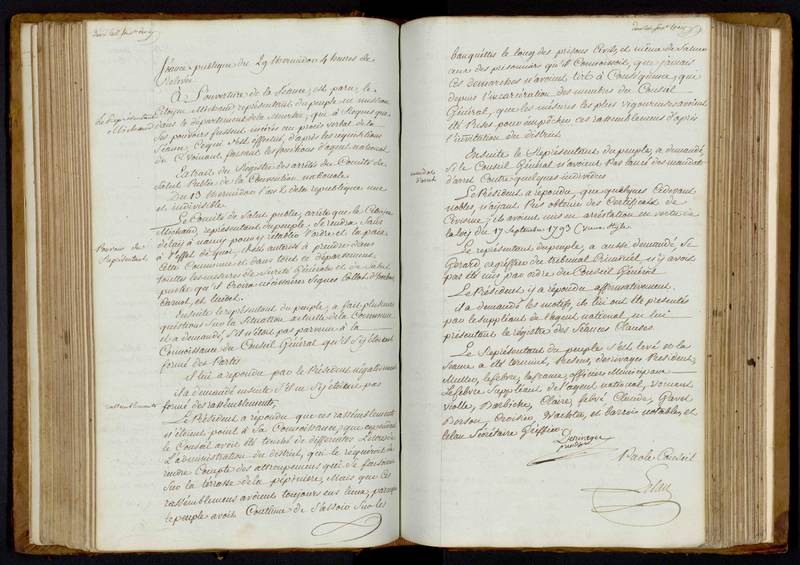 Séance publique du 29 thermidor 4 heures de
Relevée
A L'ouverture de la Séance, est paru, le
Citoyen Michaud représentant du peuple en mission
dans le département de la Meurthe, qui a Requis que
Ses pouvoirs fussent insérés au procès verbal de la
Séance, Ce qui s'est effectué, d'après les réquisitions
de C. Voinant, faisant les fonctions d'agent national.
Le Représentant
Michaud
Extrait du Registre des arrêtés du Comité de
Salut Public de la Convention nationale
Du 13 thermidor l'an 2 de la république une
et indivisible
Le Comité de Salut public, arrête que le Citoyen
Michaud, représentant du peuple, se rendra Sans
délai à nancy pour y rétablir l'ordre et la paix
à l'effet de quoi, il est autorisé à prendre dans
Cette Commune et dans tout ce département
toutes les mesures de Sureté Générale et de Salut
public qu'il Croira nécessaires Signés Collot d'herbois
Carnot, et
Pouvoirs du
Représentant
Ensuite le représentant du peuple, a fait plusieurs
questions Sur la Situation actuelle de la Commune
et a demandé, s'il n'était pas parvenu à la
Connoissance du Conseil Général qu'il s'y étoient
formé des Partis
Il lui a répondu par le Président négativement
Il a demandé ensuite S'il ne S'y étoient pas
formé des rassemblements,
rassemblements
Le Président a répondu que ces rassemblements
n'étoient point à Sa Connoissance, que cependant
le Conseil avoit été tenté de différentes Lettres de
L'administration du district, qui le requéroit de
rendre Compte des attroupemens qui Se faisoient
Sur la terrasse de la pépinière, Mais que Ces
rassemblemens avoient toujours eus lieux, parceque
le peuple avoit Coutume de S'assoir Sur les
banquettes le long des prisons Civils, et même de Saluer
ceux des prisonniers qu'il Connoissoit, que jamais
Ces démarches n'avoient tiré à Conséquence, que
depuis l'incarcération des membres du Conseil
Général, que les mesures les plus vigoureuses avoient
été Prises pour empêcher ces rassemblemens d'après
l'invitation du district
Ensuite le Représentant du peuple, a demandé
Si le Conseil Général n'avoient Pas lancé des mandats
d'arrêt Contre quelques individus
mandats
d'arrêt
Le Président a répondu, que quelques Cidevant
nobles, n'ayant Pas obtenu des Certificats de
Civisme, et avoient mis en arrestation en vertu de
la loi du 17 Septembre 1793 (Vieux Style
Le représentant du peuple, a aussi demandé, Si
Gérard, ex greffier du tribunal Criminel n'y avoit
pas été mis par ordre du Conseil Général
Le Président, y a répondu affirmativement.
Il a demandé les motifs, ils lui ont été présentés
par le suppléant de l'agent national, en lui
présentant le registre des Séances Closes.
Le Représentant du peuple s'est levé et la
Séance a été terminée, Présens, Desrivages Président,
Muller, lefebvre, lafrance, officiers Municipaux
Lefebvre Suppléant de l'agent national, Voinant
Viotte, Barbiche, Claire, febvé Claude, Gavet
Berson, Croisier, Wachter, et barrois notables, et
Lelan Secrétaire Greffier
Desrivages
président
Par le Conseil
Lelan